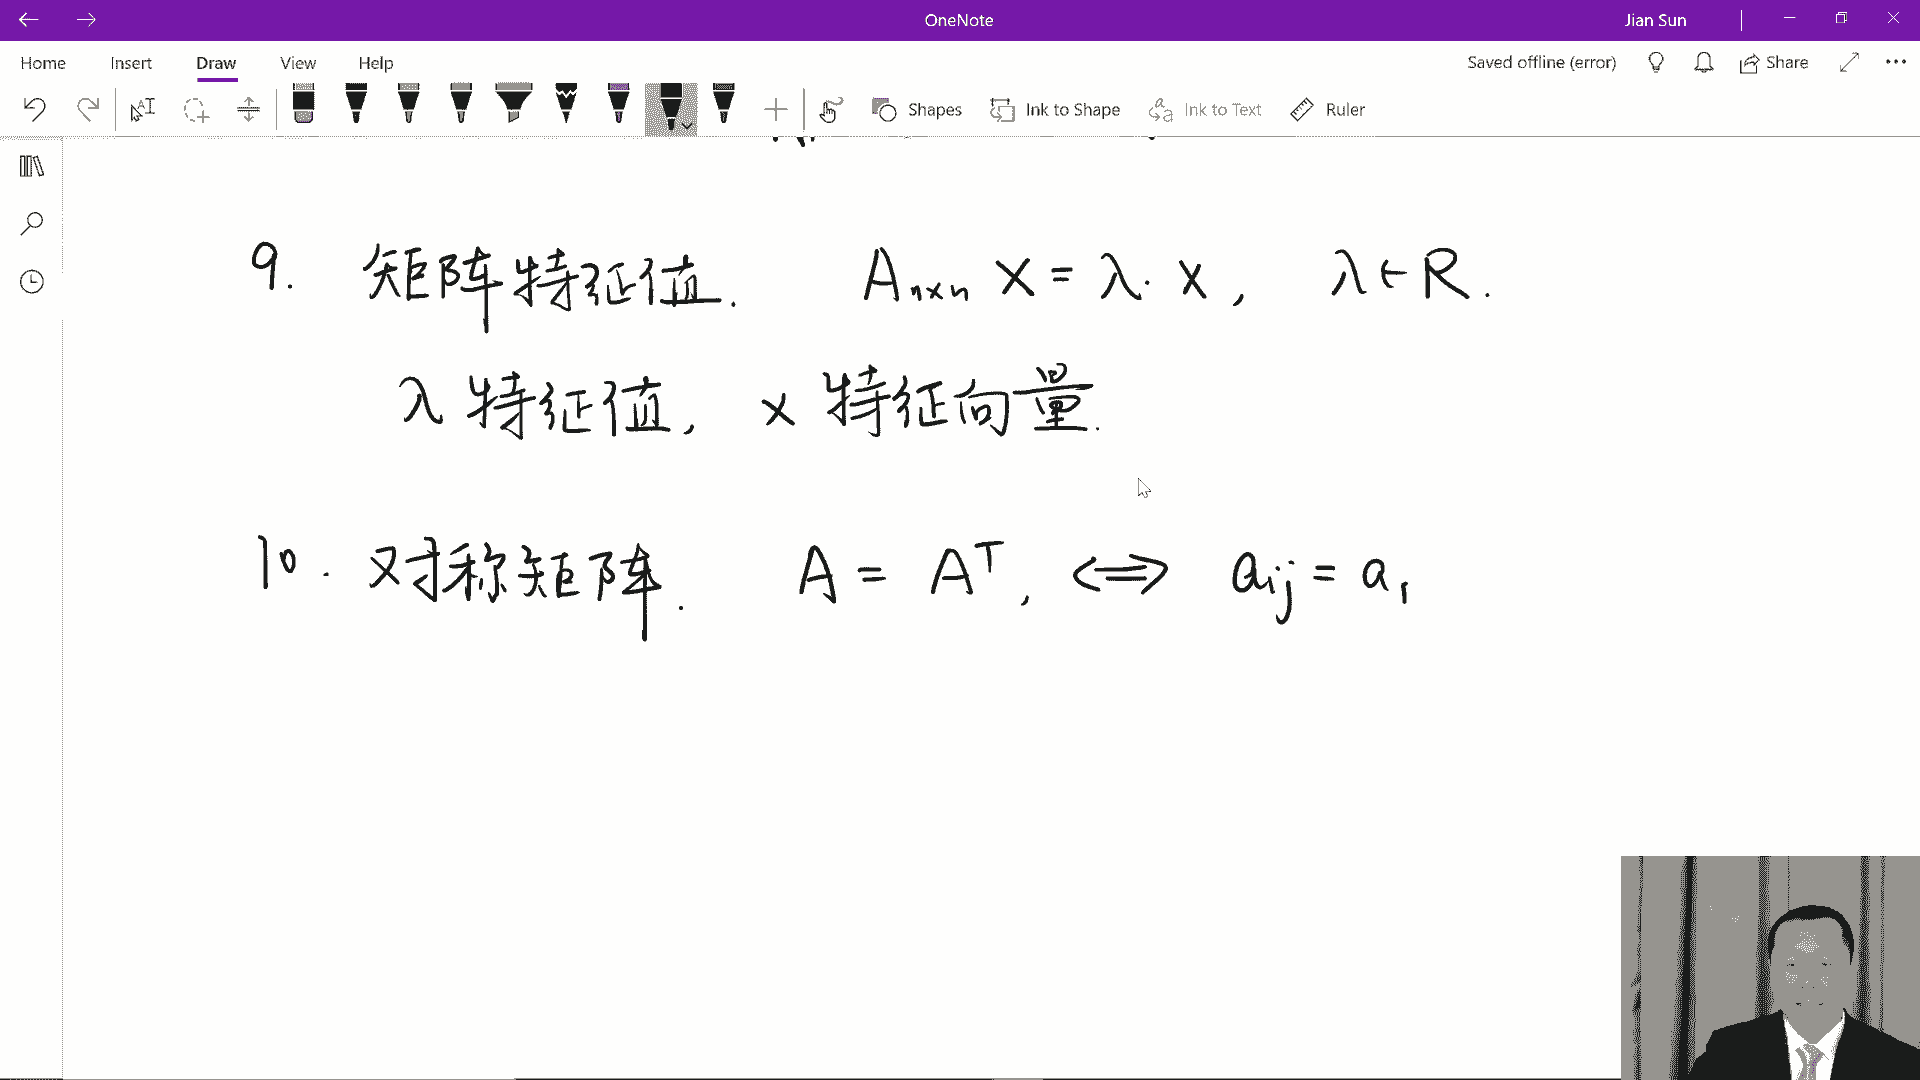 OneNote
Jian Sun
Home Insert Draw View Help
Saved offline (error) Share
Shapes Ink to Shape Ink to Text Ruler
9. 矩阵特征值. Aₙₓₙ x = λ· x, λ∈R.
λ 特征值, x 特征向量.
10. 对称矩阵. A = Aᵀ, ⟺ aᵢⱼ = a